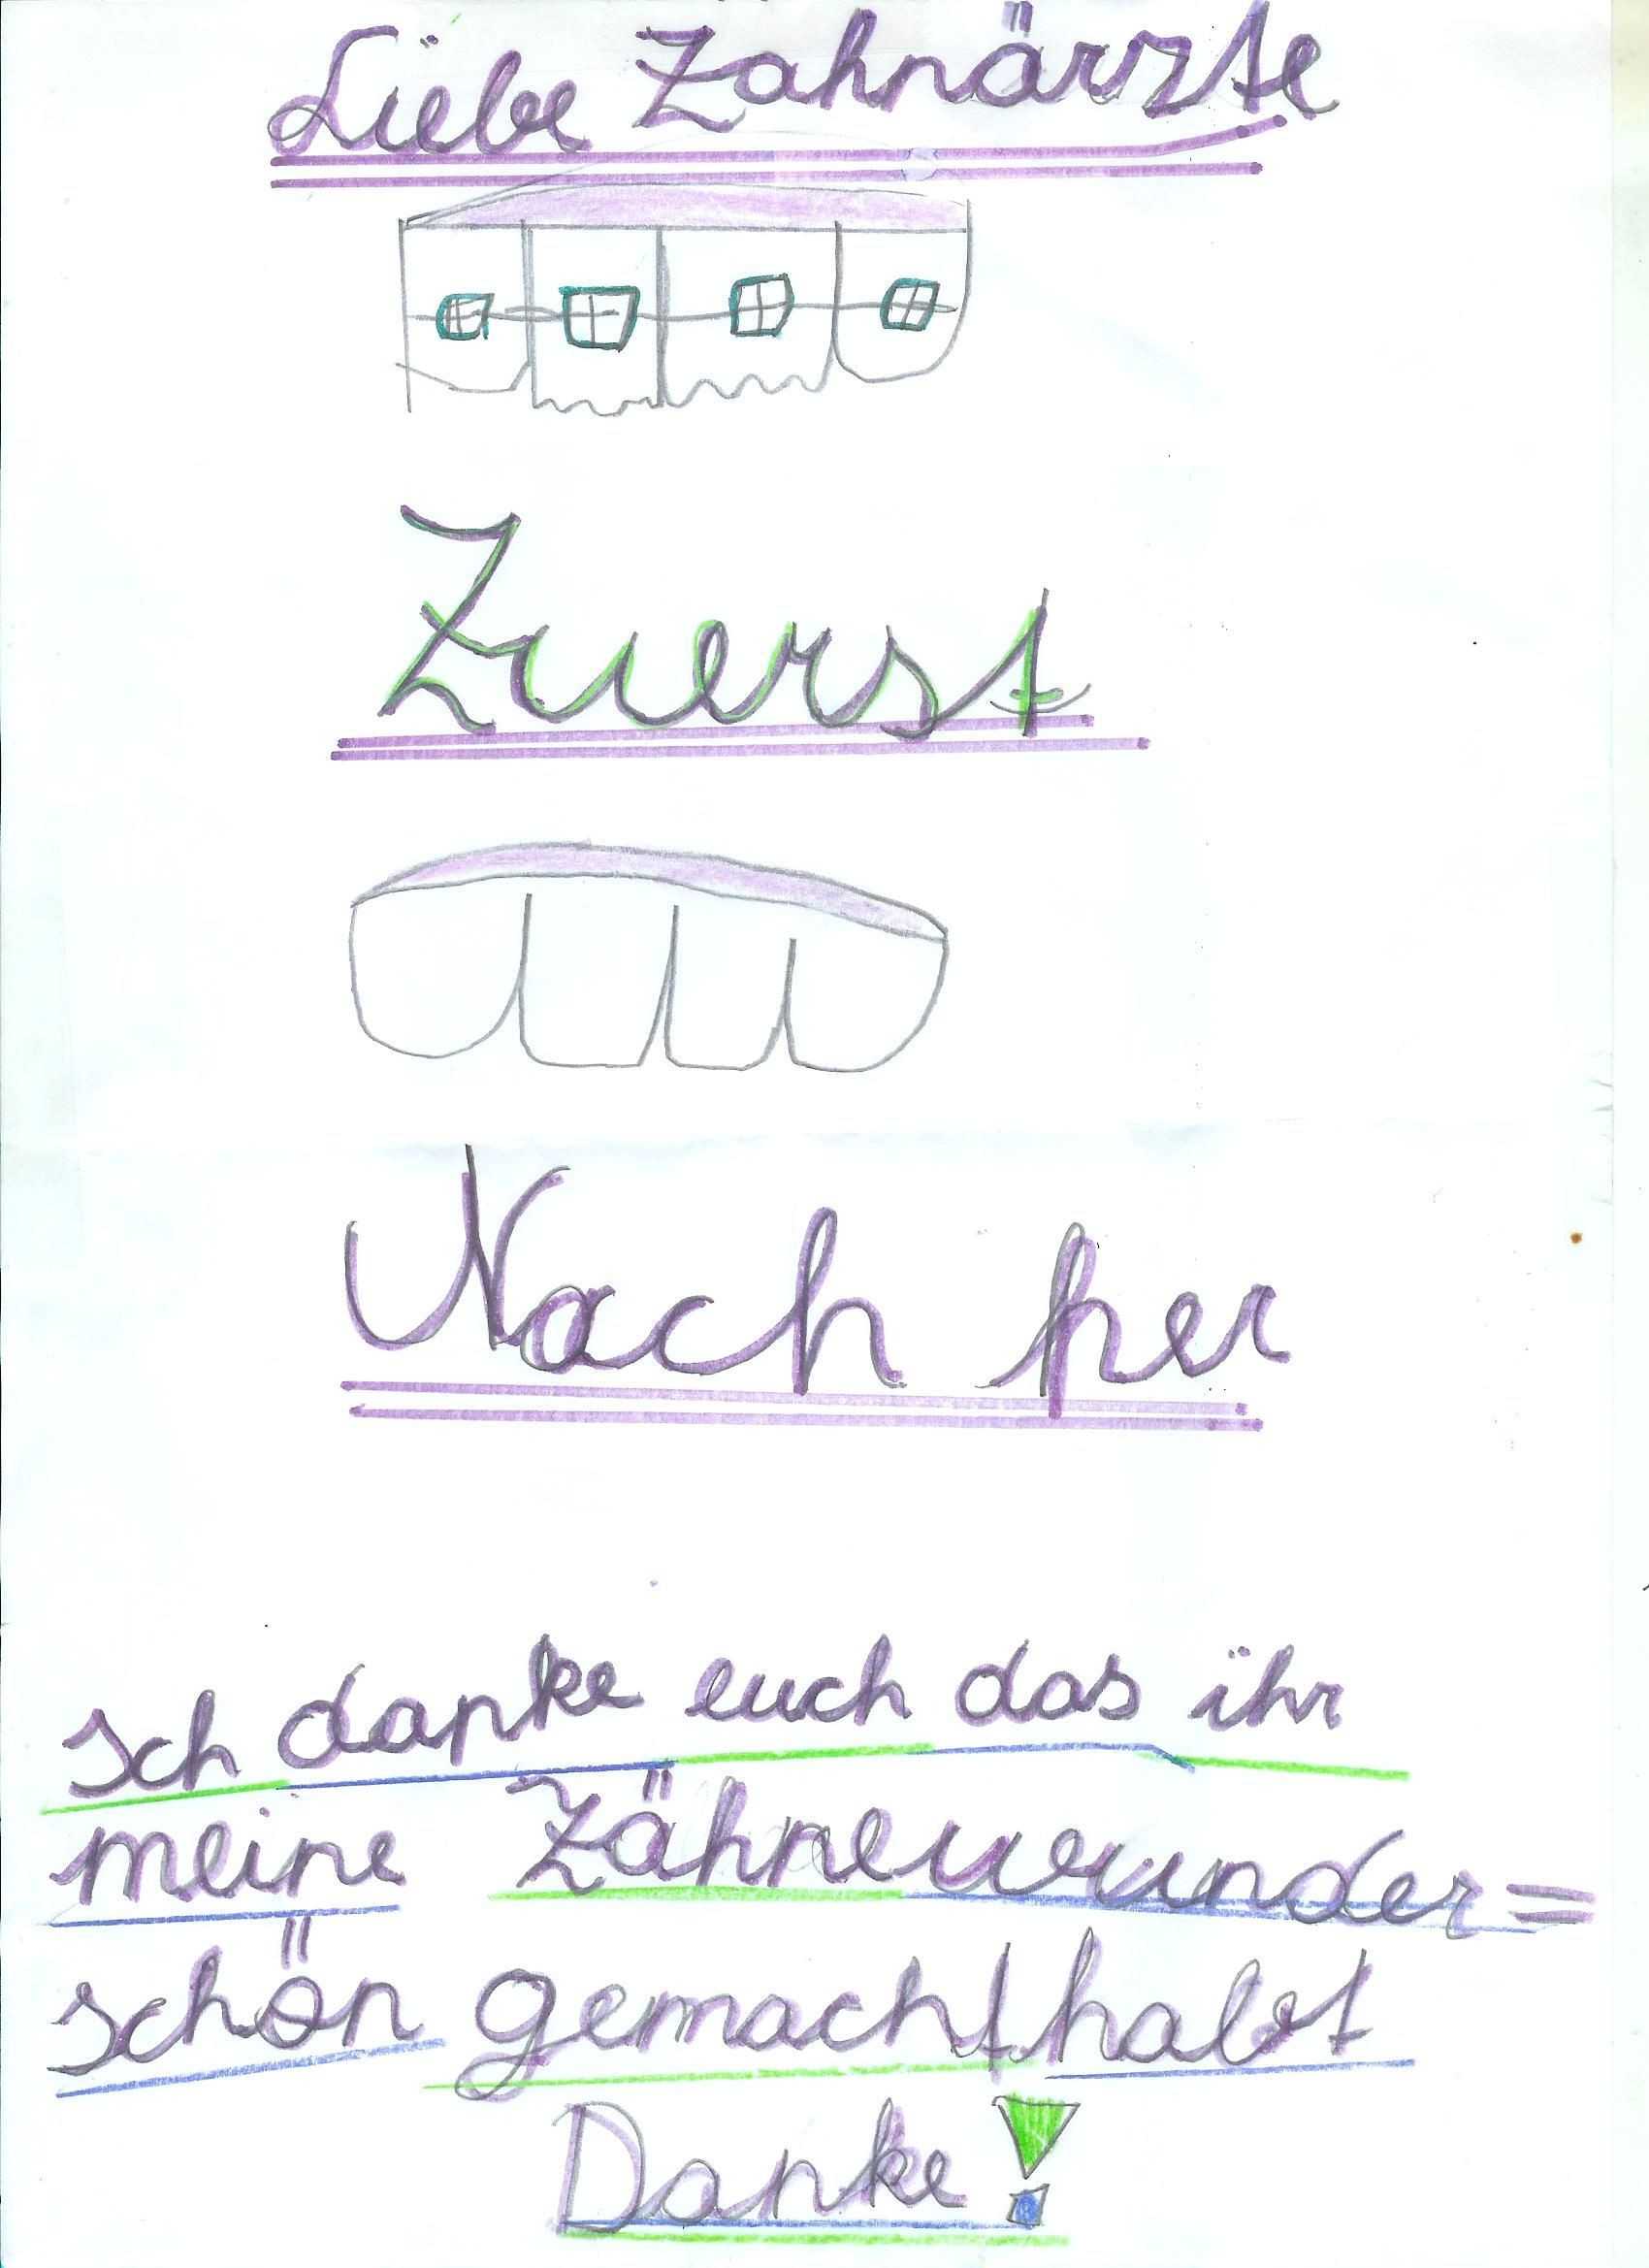 Liebe Zahnärzte
Zuerst
Nach her
Ich danke euch das ihr
meine Zähne wunder=
schön gemacht habt
Danke!